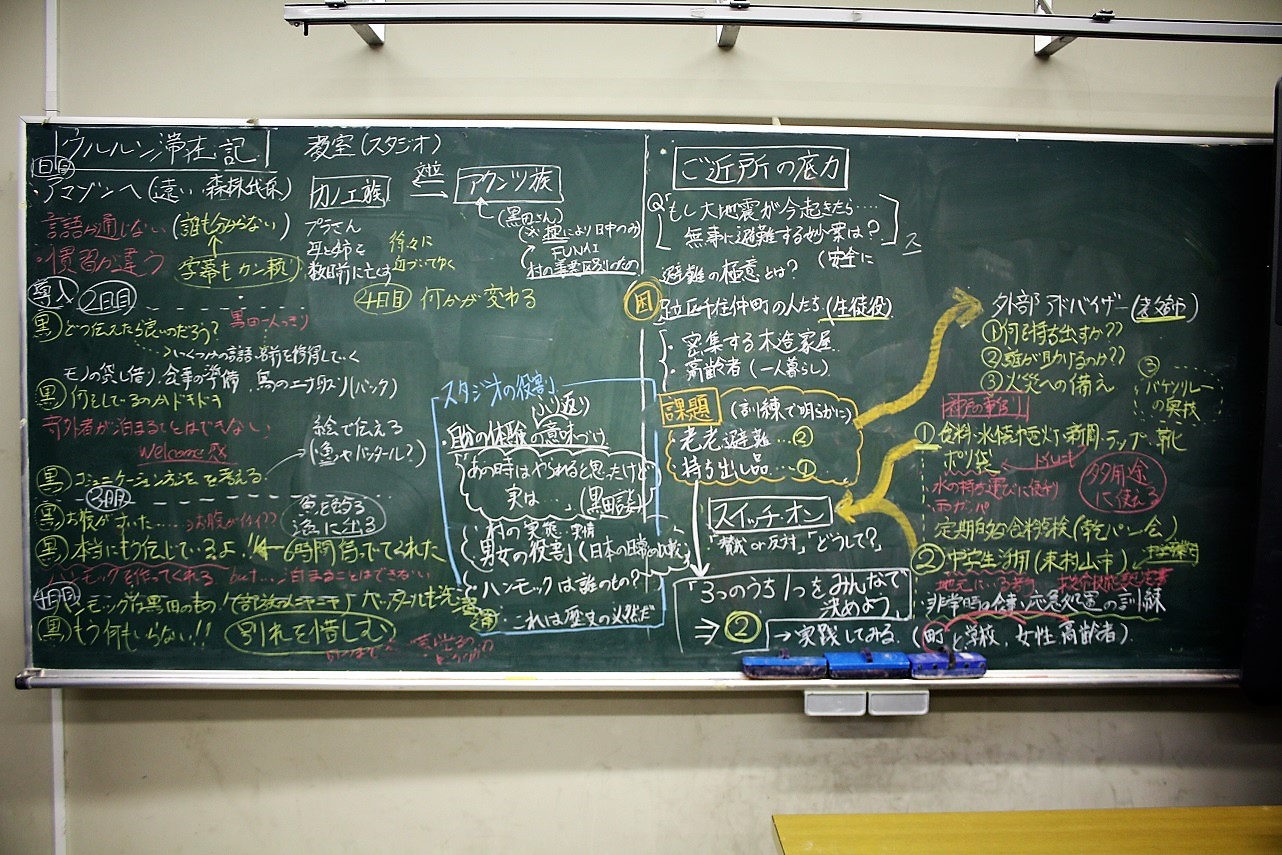 ウルルン滞在記
教室(スタジオ)
1日目
・アマゾンへ(遠い・森林伐採)
言語が通じない(誰も分からない)
・慣習が違う
字幕もカン頼り
カノエ族
対立
アウンツ族
プラさん
母と姉を
数日前に亡くす
徐々に
近づいてゆく
(黒田さん)
により日中のみ)
FUNAI
4日目 何かが変わる
導入 2日目
黒 どう伝えたら良いのだろう?
黒田一人っきり
いくつかの言語・名前を修得していく
モノの貸し借り、食事の準備、鳥のエサ用スリ(バック)
黒 何をしているのかドキドキ
部外者が泊まることはできない
Welcome
絵で伝える
黒 コミュニケーション方法を考える
3日目
漁に出る
黒 お腹がすいた……
黒 本当にもう伝じているよ 6時間待っててくれた
ハンモックを作ってくれる but… 泊まることはできない
4日目
黒 もう何もいらない!! 別れを惜しむ
スタジオの役割
ふり返り
・自分の体験の意味づけ
「あの時はやれると思ったけど
実は…」(黒田談)
・村の実態・実情
・男女の役割(日本の日常の比較)
・ハンモックは誰のもの?
・これは歴史の必然だ
ご近所の底力
Q「もし大地震が今起きたら……
無事に避難する妙案は?」
(安全に
避難の極意とは?
困
足立区千住仲町の人たち(生徒役)
・密集する木造家屋
・高齢者(一人暮らし)
課題 (訓練で明らかに)
老老避難…②
持ち出し品…①
スイッチ・オン
「賛成or反対」「どうして?」
「3つのうち1つをみんなで
決めよう」
⇒ ② →実践してみる。
外部アドバイザー
①何を持ち出すか??
②誰が助けるのか??
③火災への備え
③
バケツリレー
の実技
神戸の軍配
① 食料・水・懐中電灯・新聞・ラップ・靴
ポリ袋
トイレ
水の持ち運びに便利
雨ガッパ
多用途
に使える
定期的な食料点検(乾パン会)
② 中学生活用(東村山市)
・非常時の仕事・応急処置の訓練
(町と学校、女性・高齢者)